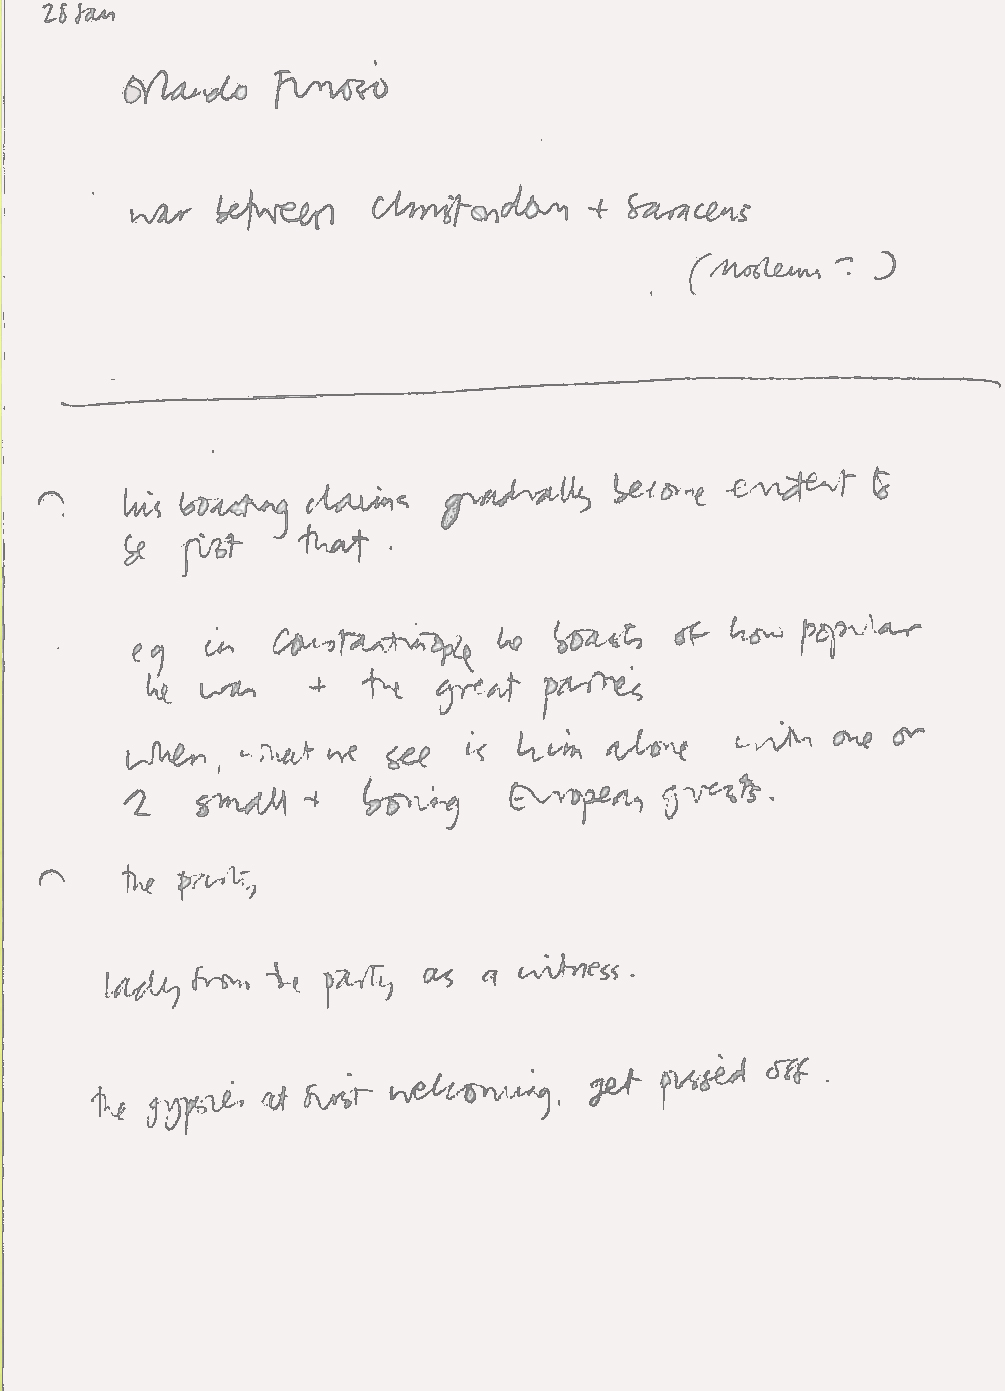 28 Jan
Orlando Furioso
war between Christendom + Saracens
(Moslems?)
his boasting claims gradually become evident to
be just that.
eg in Constantinople he boasts of how popular
he was + the great parties
when, what we see is him alone with one or
2 small + boring European guests.
the party,
lady from the party as a witness.
the gypsies at first welcoming, get pissed off.